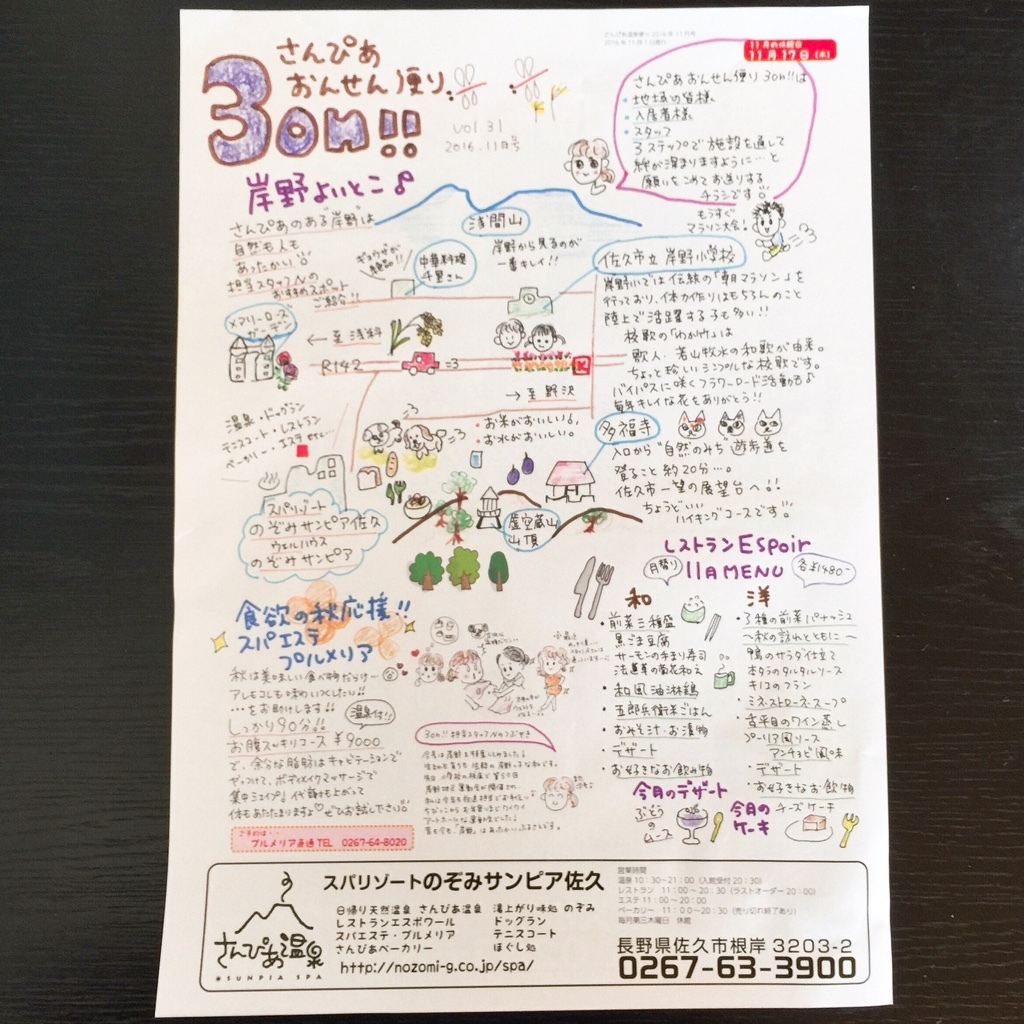 さんぴあ
おんせん便り
3on!!
vol.31
2016.11月号
さんぴあ温泉便り 2016年11月号
2016年11月1日発行
11月の休館日
11月17日(木)
さんぴあおんせん便り 3on!!は
・地域の皆様
・入居者様
・スタッフ
3ステップで施設を通して
絆が深まりますように…と
願いをこめてお送りする
チラシです
岸野よいとこ♪
さんぴあのある"岸野"は
自然も人も
あったかい
担当スタッフNの
おすすめスポット
ご紹介!!
浅間山
岸野から見るのが
一番キレイ!!
もうすぐ
マラソン大会!
ギョウザが
絶品!!
中華料理
千里さん
佐久市立 岸野小学校
岸野小では伝統の「朝マラソン」を
行っており、体力作りはもちろんのこと
陸上で活躍する子も多い!!
校歌の「わかゆ」は
歌人・若山牧水の和歌が由来。
ちょっと珍しいシンプルな校歌です。
バイパスに咲くフラワーロード活動も♪
毎年キレイな花をありがとう!!
メアリーローズ
ガーデン
← 至 浅科
R142
→ 至 野沢
温泉・ドッグラン
テニスコート・レストラン
ベーカリー・エステ etc…
・お米がおいしい。
・お水がおいしい。
多福寺
入口から"自然のみち"遊歩道を
登ること約20分…。
佐久市一望の展望台へ!!
ちょうどいい
ハイキングコースです
虚空蔵山
山頂
スパリゾート
のぞみサンピア佐久
ウェルハウス
のぞみサンピア
食欲の秋応援!!
スパエステ
プルメリア
秋は美味しい食べ物だらけ…
アレもコレも味わいつくしたい!!
…をお助けします!!
しっかり90分!!
温泉付!!
お腹スッキリコース ¥9000
で、余分な脂肪はキャビテーションで
やっつけて、ボディメイクマッサージで
集中シェイプ! 代謝も上がって
体もあたたまりますよ♡ぜひお試し下さい
ご予約は…
プルメリア直通TEL 0267-64-8020
3on!! 担当スタッフNのつぶやき
レストラン Espoir
月替り
11月MENU
各¥1480-
和
・前菜三種盛
黒ごま豆腐
サーモンの手まり寿司
法蓮草の菊花和え
・和風油淋鶏
・五郎兵衛米ごはん
・おみそ汁・お漬物
・デザート
・お好きなお飲み物
洋
・3種の前菜パナッシェ
〜秋の訪れとともに〜
鴨のサラダ仕立て
ホタテのタルタルソース
キノコのフラン
・ミネストローネスープ
・舌平目のワイン蒸し
アンチョビ風味
・デザート
・お好きなお飲み物
今月のデザート
ぶどう
の
ムース
今月の
ケーキ
チーズケーキ
さんぴあ温泉
SUNPIA SPA
スパリゾートのぞみサンピア佐久
日帰り天然温泉 さんぴあ温泉 湯上がり味処 のぞみ
レストランエスポワール ドッグラン
スパエステ・プルメリア テニスコート
さんぴあベーカリー ほぐし処
http://nozomi-g.co.jp/spa/
営業時間
温泉 10:30〜21:00 (入館受付20:30)
レストラン 11:00〜20:30 (ラストオーダー20:00)
エステ 11:00〜20:00
ベーカリー 11:00〜20:30 (売り切れ終了あり)
毎月第三木曜日 休館
長野県佐久市根岸 3203-2
0267-63-3900